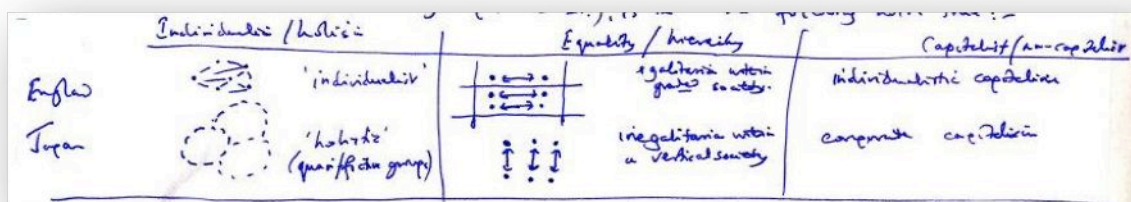 following
Individualism / holism
Equality / hierarchy
Capitalist / non-capitalist
England
'individualist'
egalitarian within
graded society.
individualistic capitalism
Japan
'holistic'
(quasi-fictive groups)
inegalitarian within
a vertical society
corporate capitalism